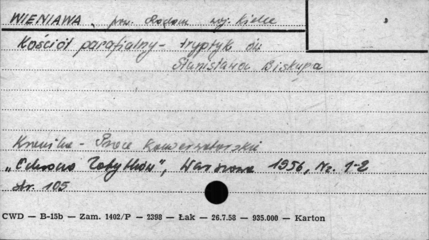 WIENIAWA, pow. Radom woj. Kielce
Kościół parafialny - tryptyk św.
Stanisława Biskupa
Kronika - Prace konserwatorskie
„Ochrona Zabytków", Warszawa 1956, Nr. 1-2
str. 105
CWD — B-15b — Zam. 1402/P — 2398 — Łak — 26.7.58 — 935.000 — Karton